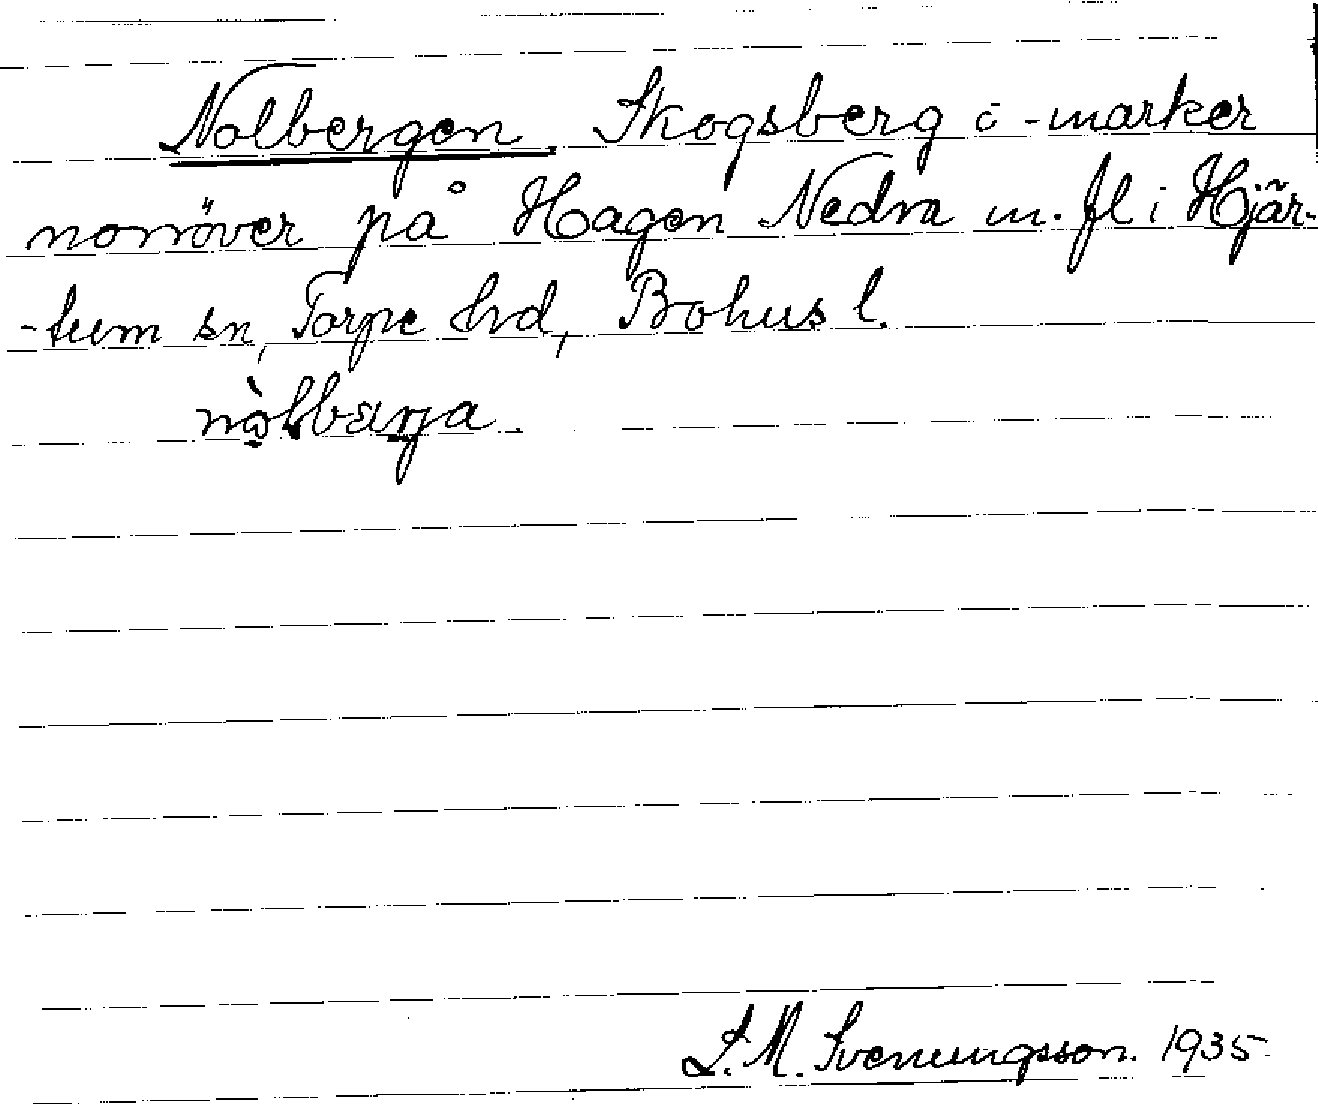 Nolbergen. Skogsberg o -marker
norröver på Hagen Nedra m. fl i Hjär-
-tum sn, Torpe hd, Bohus l.
L. M. Svenungsson. 1935